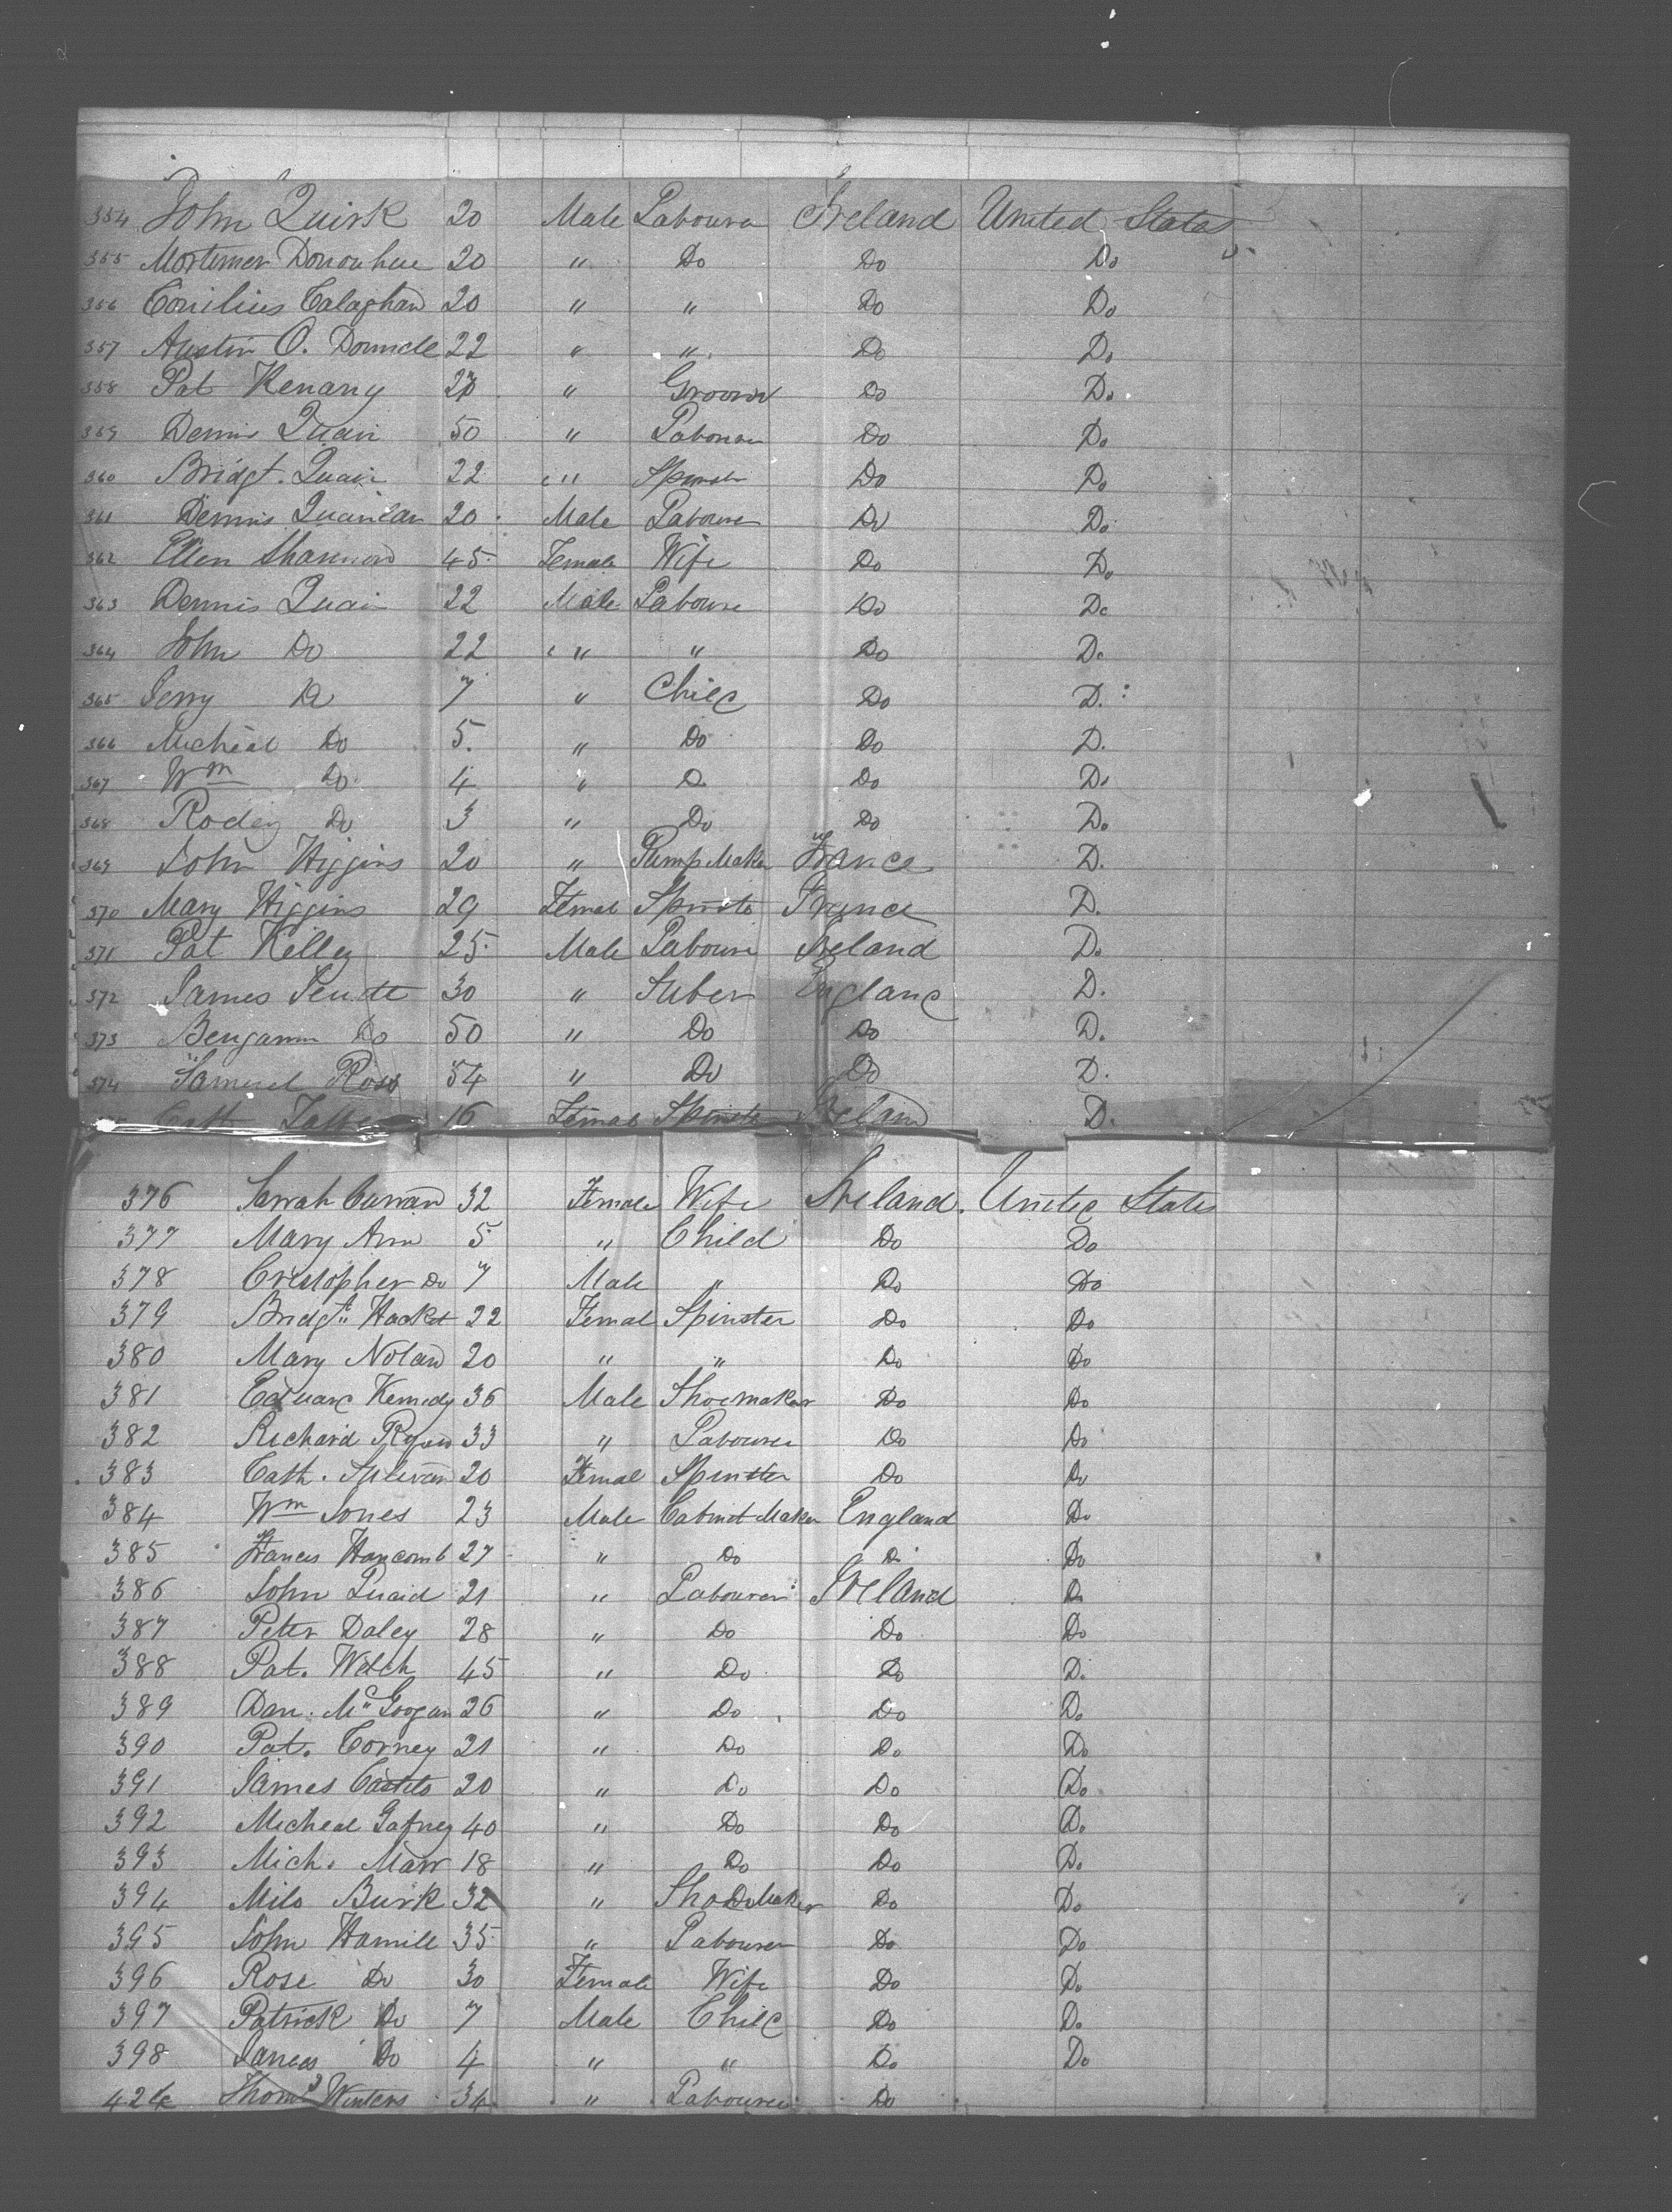 354 John Quirk 20 Male Labourer Ireland United States
355 Mortimer Donouhue 20 " Do Do Do
356 Cornilius Calaghan 20 " " Do Do
357 Austin O. Donnele 22 " " Do Do
358 Pat Kenany " Groom Do Do
359 Dennis Quain 50 " Labourer Do Do
360 Bridgt. Quain 22 " Spinster Do Do
361 Dennis Quanlan 20 Male Labourer Do Do
362 Ellen Shannon 45 Female Wife Do Do
363 Dennis Quain 22 Male Laboure Do Do
364 John Do 22 " " Do Do
365 Jerry Do 7 " Child Do D.
366 Micheal Do 5 " Do Do D.
367 Wm Do 4 " Do Do Do
368 Rodey Do 3 " Do Do Do
369 John Higgins 20 " Pump Maker France D.
370 Mary Higgins 29 Femal Spinster France D.
371 Pat Kelley 25 Male Laboure Ireland Do
372 James 30 " England D.
373 Benjamin Do 50 " Do Do D.
374 Samuel Ross 54 " Do Do D.
Cath 16 Femal Spinster Ireland D.
376 Sarrah Curran 32 Female Wife Ireland. United States
377 Mary Ann 5 " Child Do Do
378 Cristopher Do 7 Male " Do Do
379 Bridgt Hacket 22 Femal Spinster Do Do
380 Mary Nolan 20 " " Do Do
381 Edward Kennedy 36 Male Shoemaker Do Do
382 Richard Ryan 33 " Labourer Do Do
383 Cath. Sulivan 20 Femal Spinster Do Do
384 Wm Jones 23 Male Cabinet Maker England Do
385 Frances Hancomb 27 " Do Do Do
386 John Quaid 21 " Labourer Ireland Do
387 Peter Daley 28 " Do Do Do
388 Pat. Welch 45 " Do Do D.
389 Dan. Mc Googan 26 " Do Do Do
390 Pat. Corney 21 " Do Do Do
391 James 20 " Do Do Do
392 Micheal Gafney 40 " Do Do Do
393 Mich. Marr 18 " Do Do Do
394 Milo Burk 32 " Shoe Maker Do Do
395 John Hamill 35 " Labourer Do Do
396 Rose Do 30 Female Wife Do Do
397 Patrick Do 7 Male Child Do Do
398 James Do 4 " " Do Do
424 Thoms Winters 34 " Labourer Do